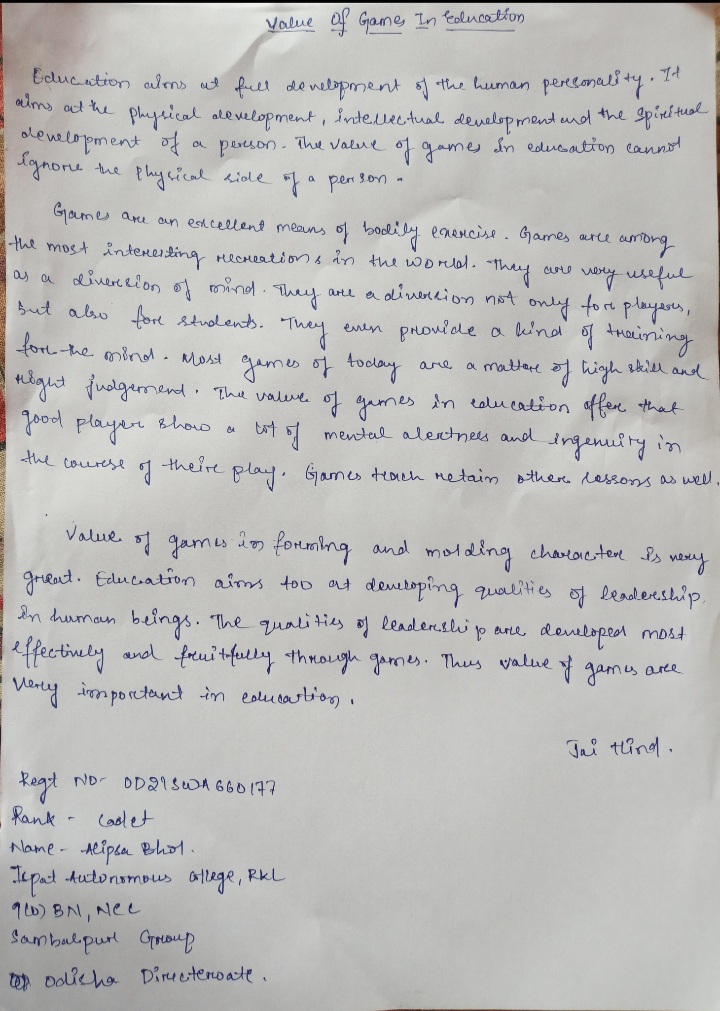 Value Of Games In Education
Education aims at full development of the human personality. It
aims at the physical development, intellectual development and the spiritual
development of a person. The value of games in education cannot
ignore the physical side of a person.
Games are an excellent means of bodily exercise. Games are among
the most interesting recreations in the world. They are very useful
as a diversion of mind. They are a diversion not only for players,
but also for students. They even provide a kind of training
for the mind. Most games of today are a matter of high skill and
right judgement. The value of games in education offer that
good player show a lot of mental alertness and ingenuity in
the course of their play. Games teach retain other lessons as well.
Value of games in forming and molding character is very
great. Education aims too at developing qualities of leadership
in human beings. The qualities of leadership are developed most
effectively and fruitfully through games. Thus value of games are
very important in education.
Jai Hind.
Regt NO- OD21SWA660177
Rank - Cadet
Name - Alipsa Bhol.
Ispat Autonomous College, RKL
9(O) BN, NCC
Sambalpur Group
Odisha Directeroate.